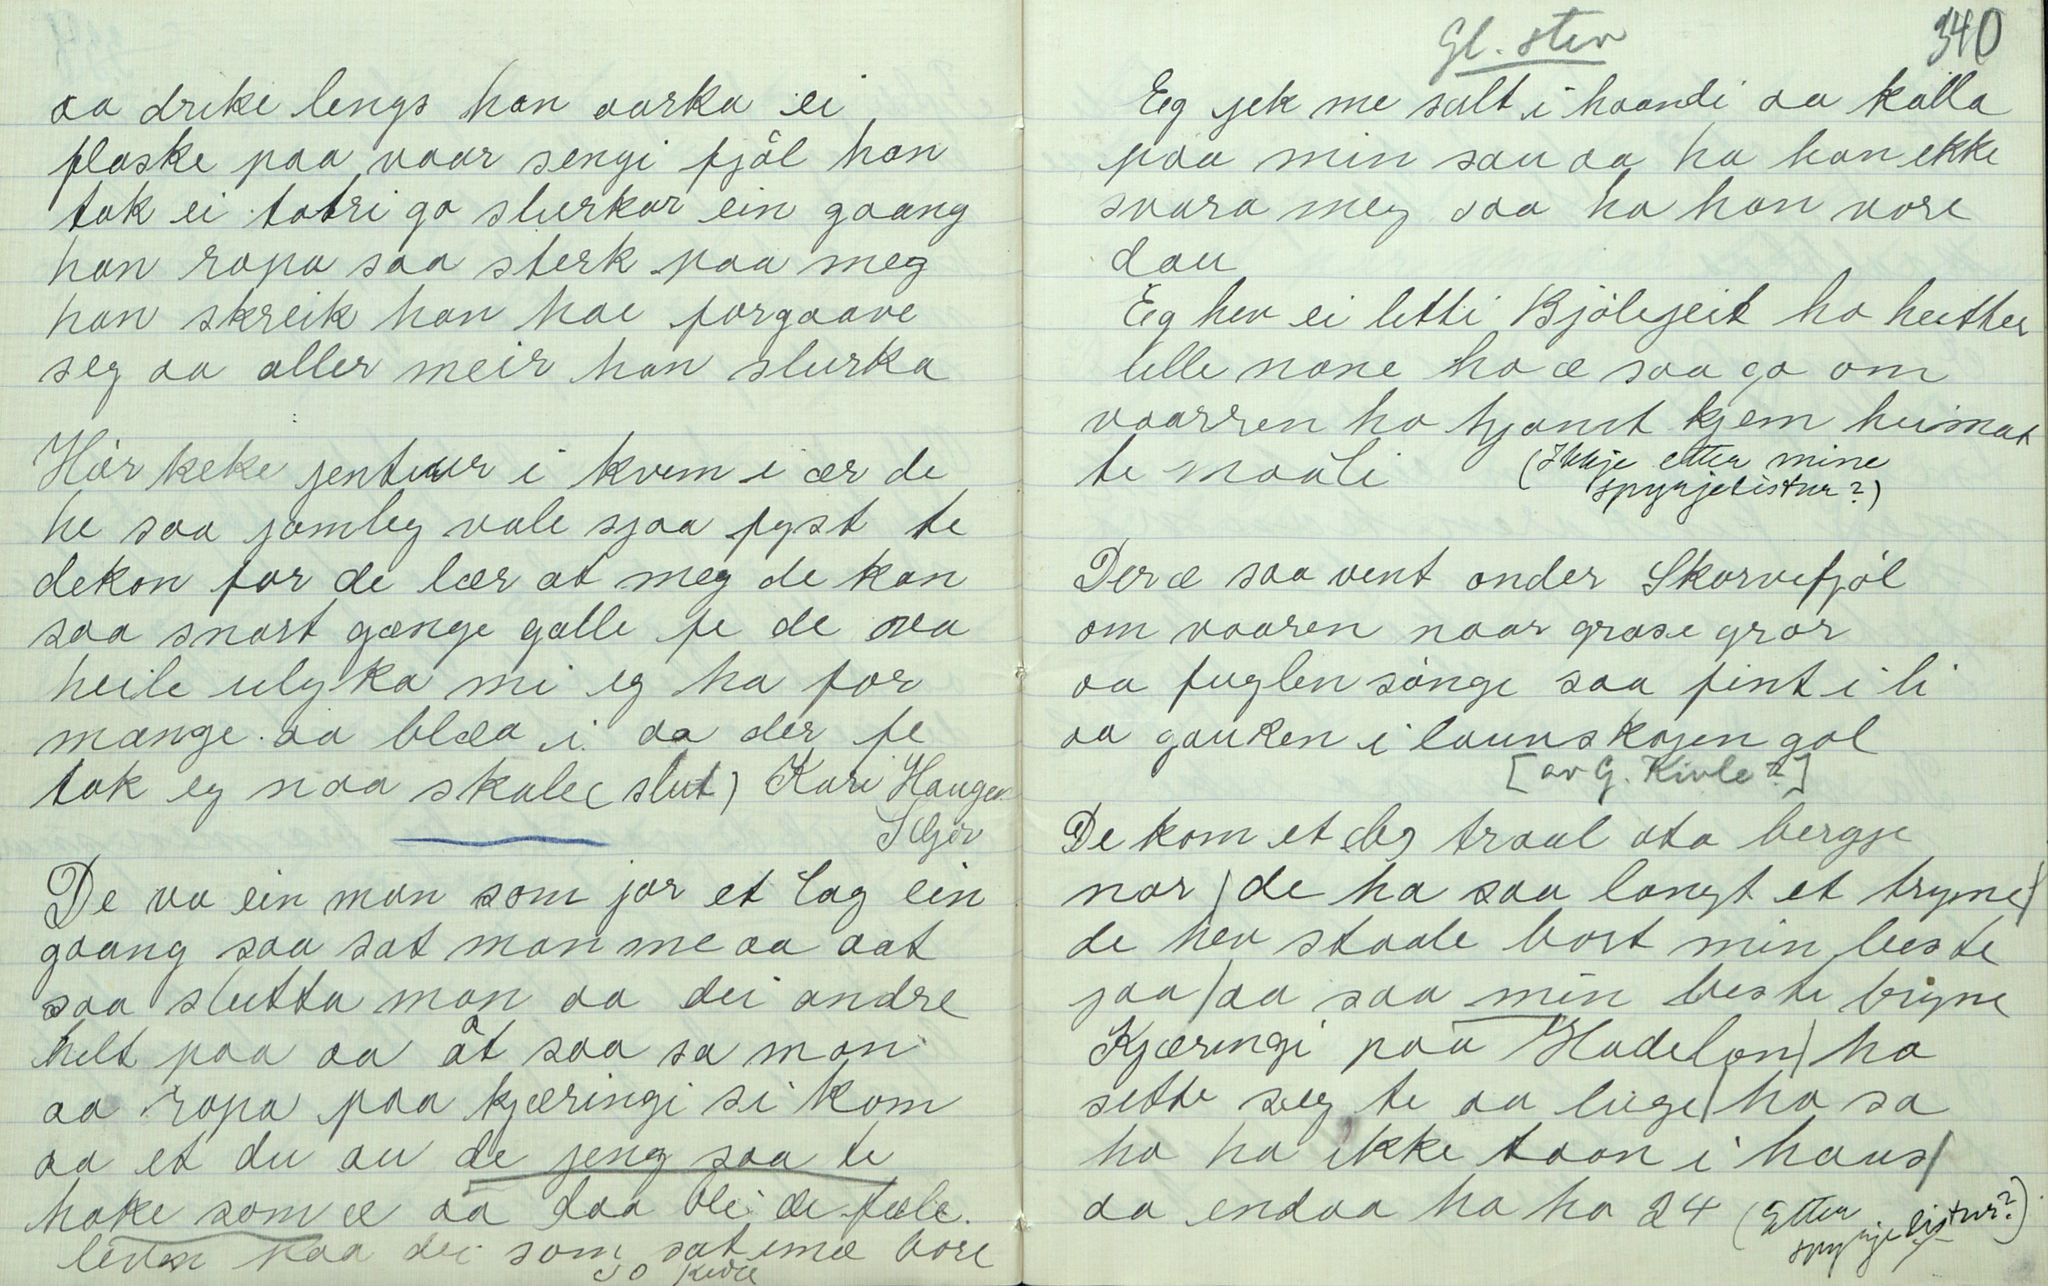 aa drike lengs han aarka ei
flaske paa vaar sengi fjöl han
tok ei totri go slurkar ein gaang
han ropa saa sterk paa meg
han skreik han hae forgaave
seg aa aller meir han slurka
Hår keke jentuur i kvem i ær de
he saa jamleg vale sjaa fyst te
dekon for de lær at meg de kan
saa snart gænge galle fe de va
heile ulyka mi eg ha for
mange aa blæa i aa der fe
tok eg naa skale (slut) Kari Haugen
De va ein man som jor et lag ein
gaang saa sat man me aa aat
saa slutta man aa dei andre
helt paa aa åt saa sa man
aa ropa paa kjæringi si kom
aa et du au de jeng saa te
hake som æ aa daa blei de fæle
leven paa dei som sat imæ bore
340
Gl. stev
Eg jek me salt i haandi aa kalla
paa min sau aa ha han ikke
svara meg saa ha han vore
dau
Eg hev ei letti Bjölljeit ho heitter
lille nane ho æ saa go om
vaarren ho tjamt kjem heimat
te maali
(Ikkje etter mine
spyrjelistur?)
Der æ saa vent onder Skorvefjöl
om vaaren naar grase gror
aa fuglen sönge saa fint i li
aa gauken i launskogen gol
[av G. Kivle?]
De kom et traal ata bergje
nor / de ha saa langt et tryne /
de hev staale bort min beste
jaa / aa saa min beste bryne
Kjæringi paa Hadelan / ho
sette seg te aa liuge / ho sa
ho ha ikke taan i haus /
aa endaa ho ha 24 (Etter
spyrjelistur?)